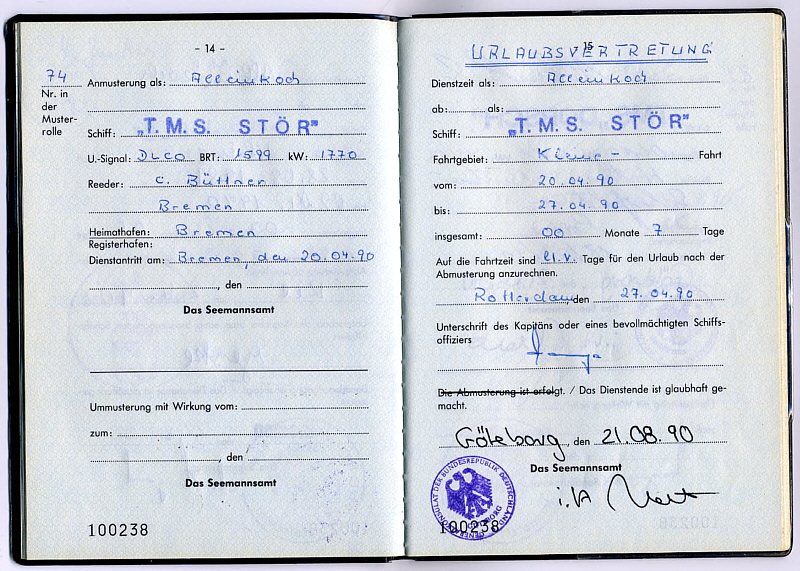 - 14 -
74
Nr. in
der
Muster-
rolle
Anmusterung als: Alleinkoch
Schiff: „T.M.S. STÖR"
U.-Signal: DLCO BRT: 1599 kW: 1770
Reeder: C. Büttner
Bremen
Heimathafen: Bremen
Registerhafen:
Dienstantritt am: Bremen, den 20.04.90
, den
Das Seemannsamt
Ummusterung mit Wirkung vom:
zum:
, den
Das Seemannsamt
100238
15
URLAUBSVERTRETUNG
Dienstzeit als: Alleinkoch
ab: als:
Schiff: „T.M.S. STÖR"
Fahrtgebiet: Fahrt
vom: 20.04.90
bis: 27.04.90
insgesamt: 00 Monate 7 Tage
Auf die Fahrtzeit sind Tage für den Urlaub nach der
Abmusterung anzurechnen.
Rotterdam, den 27.04.90
Unterschrift des Kapitäns oder eines bevollmächtigten Schiffs-
offiziers
Die Abmusterung ist erfolgt. / Das Dienstende ist glaubhaft ge-
macht.
Göteborg, den 21.08.90
Das Seemannsamt
i.A
GENERALKONSULAT DER BUNDESREPUBLIK DEUTSCHLAND
GÖTEBORG
100238